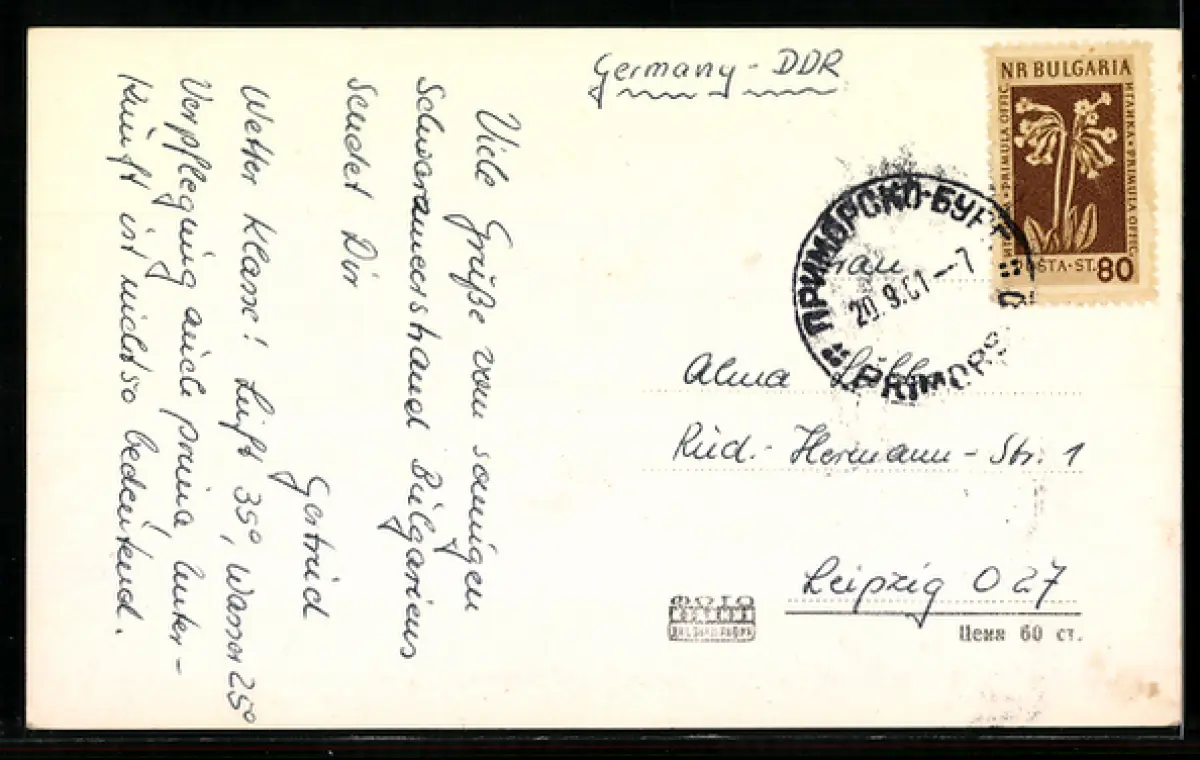 Germany - DDR
Viele Grüße vom sonnigen
Schwarzmeerstrand Bulgariens
sendet Dir
Gertrud
Wetter Klasse! Luft 35°, Wasser 25°
Verpflegung auch prima, Unter-
kunft ist nicht so bedeutend.
NR BULGARIA
PRIMULA OFFIC.
ИГЛИКА • PRIMULA OFFIC.
ST. 80
ПРИМОРСКО
20.9.61-7
PRIMORS
Frau
Alma
Rud.-Hermann-Str. 1
Leipzig O 27
ФОТО
Цена 60 ст.